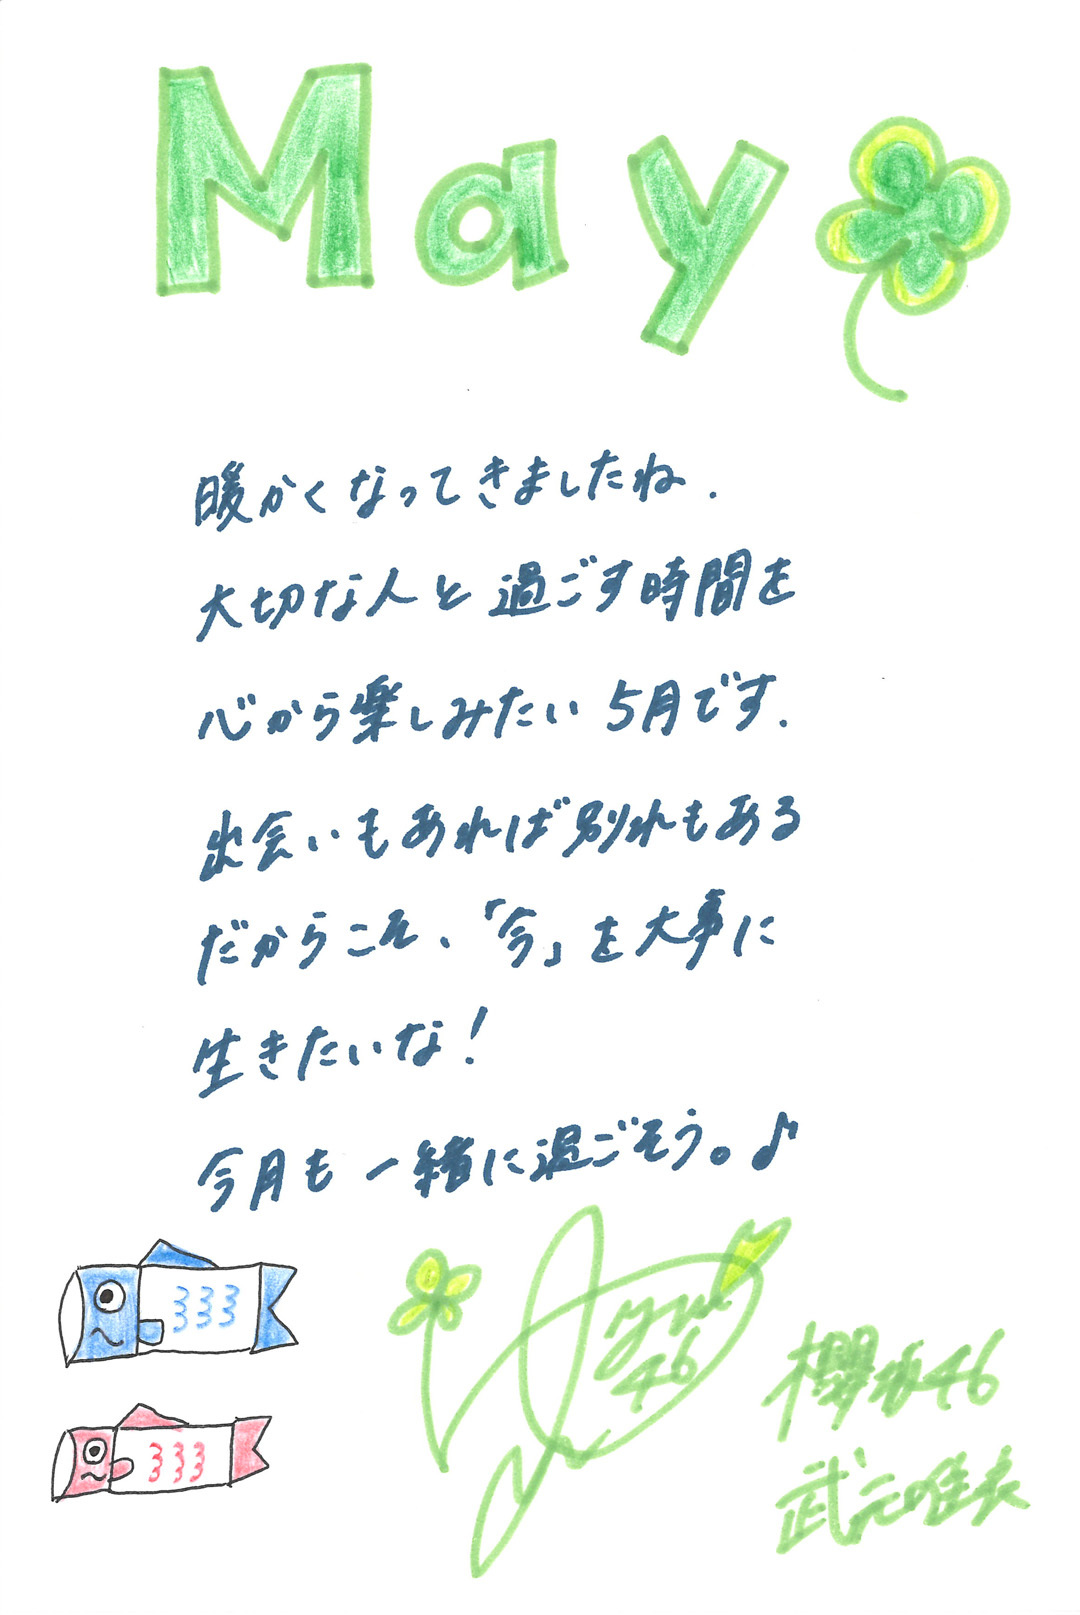 May
暖かくなってきましたね.
大切な人と過ごす時間を
心から楽しみたい5月です.
出会いもあれば別れもある
だからこそ、「今」を大事に
生きたいな!
今月も一緒に過ごそう。♪
yui
46
櫻坂46
武元唯衣